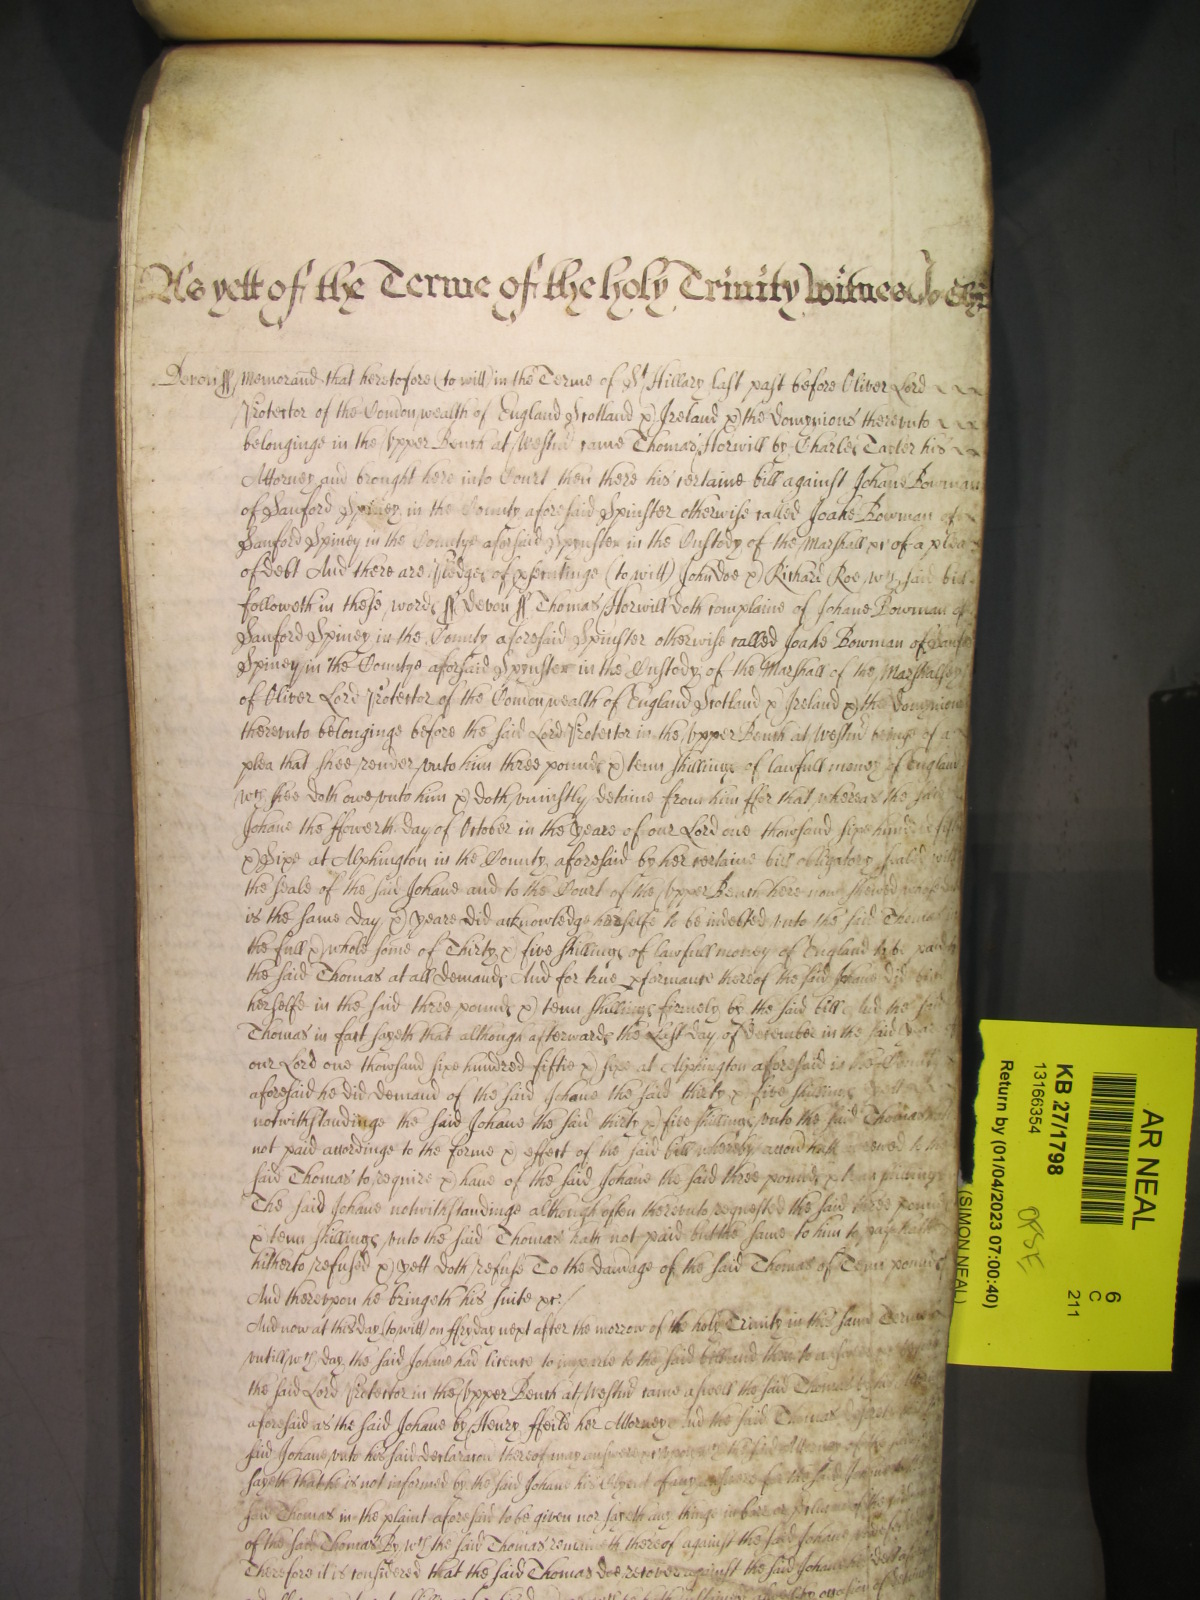 As yett of the Terme of the holy Trinity witnes
Devon ss Memorand that heretofore (to will) in the Terme of St Hillary last past before Oliver Lord
Protector of the Comonwealth of England Scotland & Ireland & the Domynions therevnto
belonginge in the Vpper Bench at Westmr came Thomas Horwill by Charles his
Attorney and brought here into Court then there his certaine bill against Johane Bowman
of Sanford Spiney in the County aforesaid Spinster otherwise called Joane Bowman of
Sanford Spiney in the Countye aforsaid Spinster in the Custody of the Marshall &c of a plea
of debt And there are Pledges of psecutinge (to witt) John Doe & Richard Roe wch said bill
followeth in these words ss Devon ss Thomas Horwill doth complaine of Johane Bowman of
Sanford Spiney in the County aforesaid Spinster otherwise called Joane Bowman of Sanford
Spiney in the Countye aforsaid Spinster in the Custody of the Marshall of the Marshalsey
of Oliver Lord Protector of the Comonwealth of England Scotland & Ireland & the Domynions
therevnto belonginge before the said Lord Protector in the Vpper Bench at Westmr beinge of a
plea that shee render vnto him three pounds & tenn shillings of lawfull money of England
wch shee doth owe vnto him & doth vniustly detaine from him ffor that whereas the said
Johane the ffowerth day of October in the yeare of our Lord one thowsand sixe hundred fiftie
& Sixe at Alphington in the County aforesaid by her certaine bill obligatory sealed with
the seale of the said Johane and to the Court of the Vpper Bench here now shewed whose date
is the same day & yeare did acknowledge herselfe to be indebted vnto the said Thomas in
the full & whole some of Thirty & five shillings of lawfull money of England to be paid to
the said Thomas at all demands And for true pformance thereof the said Johane did bind
herselfe in the said three pounds & tenn shillings firmely by the said bill And the said
Thomas in fact sayeth that although afterwards the Last day of December in the said yeare of
our Lord one thowsand sixe hundred fiftie & sixe at Alphington aforesaid in the County
aforesaid he did demand of the said Johane the said thirty & five shillings
notwithstandinge the said Johane the said thirty & five shillings vnto the said Thomas hath
not paid accordinge to the forme & effect of the said bill whereby accon hath accrewed to the
said Thomas to require & haue of the said Johane the said three pounds & tenn shillings
The said Johane notwithstandinge although often therevnto requested the said three pounds
& tenn shillings vnto the said Thomas hath not paid but the same to him to pay hath
hitherto refused & yett doth refuse To the damage of the said Thomas of Tenn pounds
And therevpon he bringeth his suite &c
And now at this day (to witt) on ffryday next after the morrow of the holy Trinity in this same Terme
vntill wch day the said Johane had licence to imparle to the said bill and then to answere
the said Lord Protector in the Vpper Bench at Westmr came aswell the said Thomas by his
aforesaid as the said Johane by Henry ffeild her Attorney And the said Thomas
said Johane vnto his said declaracon thereof may answere
sayeth that he is not informed by the said Johane his Clyent of any answere for the said Johane
said Thomas in the plaint aforesaid to be given nor sayeth any thinge in barr or
of the said Thomas By wch the said Thomas remaineth thereof against the said Johane
Therefore it is considered that the said Thomas doe recover against the said Johane his debt
AR NEAL
6
C
211
KB 27/1798
13166354
Return by (01/04/2023 07:00:40)
(SIMON NEAL)